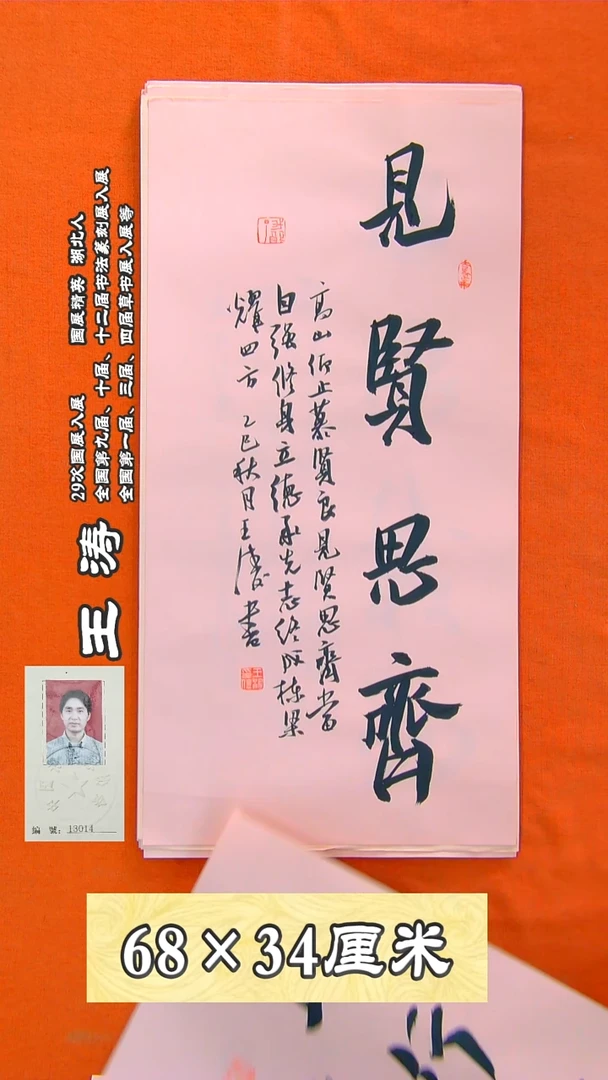 見賢思齊
高山仰止慕賢良見賢思齊當
自强修身立德承先志終成棟梁
耀四方 乙巳秋月王濤書
29次国展入展 国展精英 湖北人
全国第九届、十届、十二届书法篆刻展入展
全国第一届、三届、四届草书展入展等
王涛
编號：13014
68×34厘米